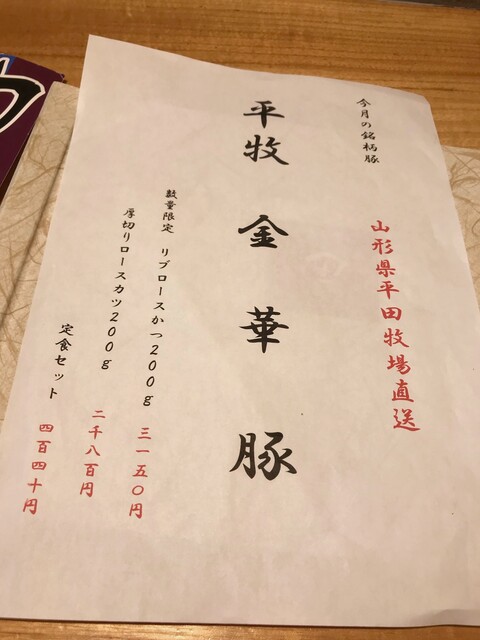 今月の銘柄豚
山形県平田牧場直送
平牧 金華豚
数量限定 リブロースかつ200g 三一五〇円
厚切りロースカツ200g 二千八百円
定食セット 四百四十円